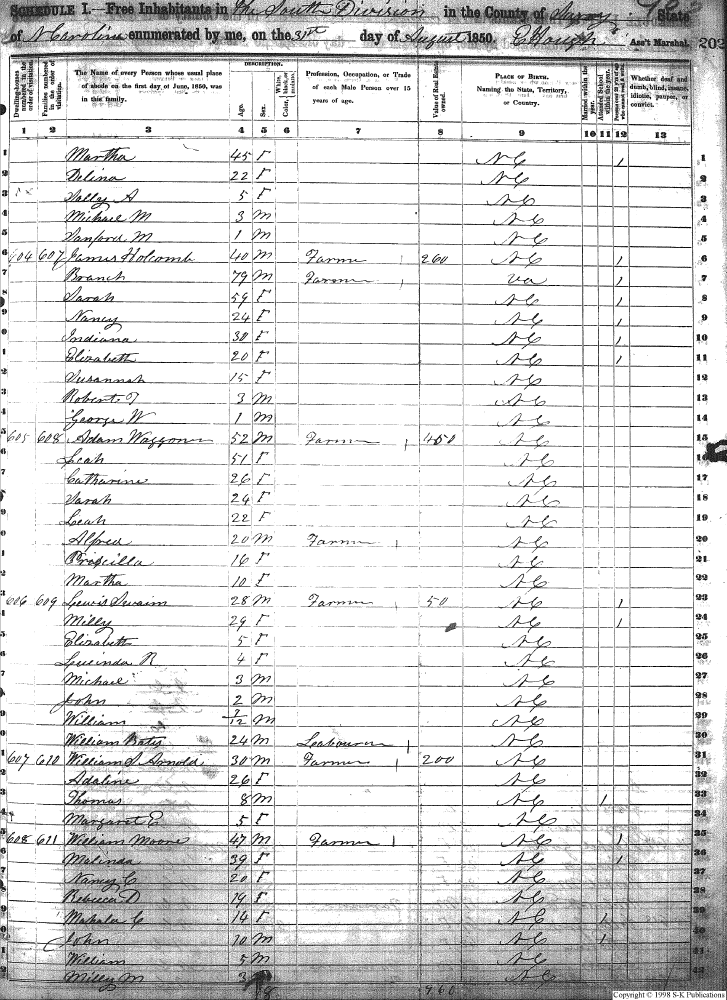 SCHEDULE I.—Free Inhabitants in the South Division in the County of Surry State
of N Carolina enumerated by me, on the 31st day of August 1850. Ass't Marshal. 203
Dwelling-houses numbered in the order of visitation.
Families numbered in the order of visitation.
The Name of every Person whose usual place of abode on the first day of June, 1850, was in this family.
DESCRIPTION.
Age.
Sex.
Color, White, black, or mulatto.
Profession, Occupation, or Trade of each Male Person over 15 years of age.
Value of Real Estate owned.
PLACE OF BIRTH. Naming the State, Territory, or Country.
Married within the year.
Attended School within the year.
Persons over 20 y'rs of age who cannot read & write.
Whether deaf and dumb, blind, insane, idiotic, pauper, or convict.
1 2 3 4 5 6 7 8 9 10 11 12 13
1 Martha 45 F NC / 1
2 Delina 22 F NC 2
3 Sally A 5 F NC 3
4 Michael M 3 M NC 4
5 Sanford M 1 M NC 5
6 604 607 James Holcomb 40 M Farmer 260 NC / 6
7 Branch 79 M Farmer Va / 7
8 Sarah 59 F NC / 8
9 Nancy 24 F NC / 9
10 Indiana 30 F NC / 10
11 Elizabeth 20 F NC / 11
12 Susannah 15 F NC 12
13 Robert 3 M NC 13
14 George W 1 M NC 14
15 605 608 Adam Waggoner 52 M Farmer 450 NC 15
16 Leah 51 F NC 16
17 Catharine 26 F NC 17
18 Sarah 24 F NC 18
19 Leah 22 F NC 19
20 Alfred 20 M Farmer NC 20
21 Priscilla 16 F NC 21
22 Martha 10 F NC 22
23 606 609 Lewis Swaim 28 M Farmer 50 NC / 23
24 Milly 29 F NC / 24
25 Elizabeth 5 F NC 25
26 Lucinda R 4 F NC 26
27 Michael 3 M NC 27
28 John 2 M NC 28
29 William 2/12 M NC 29
30 William 24 M Labourer NC 30
31 607 610 William S Arnold 30 M Farmer 200 NC 31
32 Adaline 26 F NC 32
33 Thomas 8 M NC 1 33
34 Margaret E 5 F NC 34
35 608 611 William Moore 47 M Farmer NC / 35
36 Malinda 39 F NC / 36
37 Nancy C 20 F NC 37
38 Rebecca D 19 F NC 38
39 Mahala C 14 F NC 1 39
40 John 10 M NC 1 40
41 William 5 M NC 41
42 Milly M 3 NC 42
960
Copyright © 1998 S-K Publications